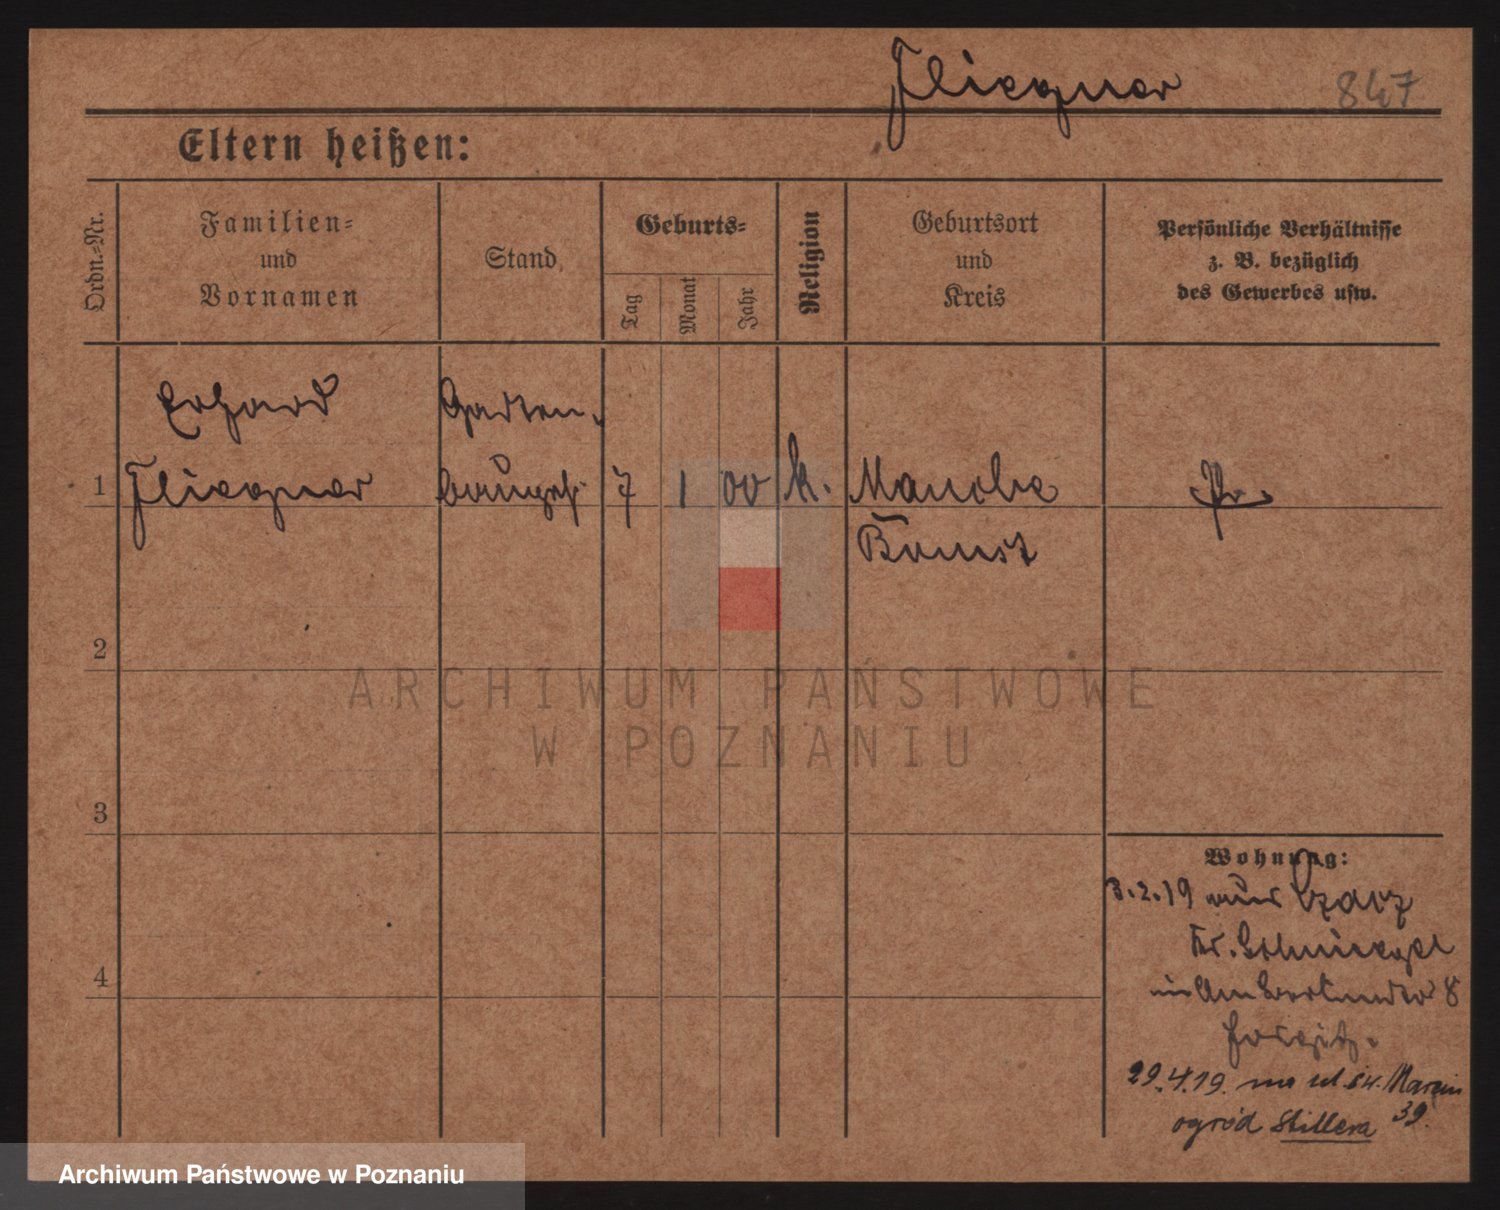 Fliegner
847
Eltern heißen:
Ordn.=Nr.
Familien=
und
Vornamen
Stand
Geburts=
Tag
Monat
Jahr
Religion
Geburtsort
und
Kreis
Persönliche Verhältnisse
z. B. bezüglich
des Gewerbes usw.
Erhard Garten-
1 Fliegner baugeh. 7 1 00 k. Manche Pr.
Bomst
2
ARCHIWUM PAŃSTWOWE
W POZNANIU
3
Wohnung:
3.2.19 aus Czacz
Kr. Schmiegel
4
8
29.4.19. na ul. św. Marcin
ogród Stillera 39.
Archiwum Państwowe w Poznaniu